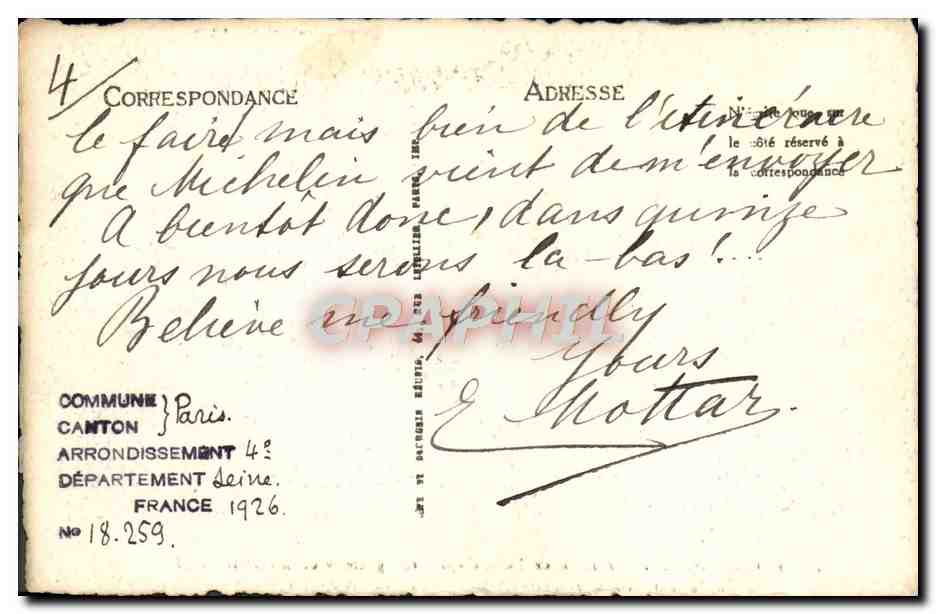 4/
CORRESPONDANCE
ADRESSE
N'écrire que sur
le côté réservé à
la correspondance
le faire mais bien de l'itinéraire
que Michelin vient de m'envoyer
A bientôt donc, dans quinze
jours nous serons la-bas!...
Believe me friendly
Yours
E Mottar.
CPAPHIL
COMMUNE } Paris.
CANTON
ARRONDISSEMENT 4e
DÉPARTEMENT Seine.
FRANCE 1926.
No 18.259.
RUE LETELLIER, PARIS, IMP.